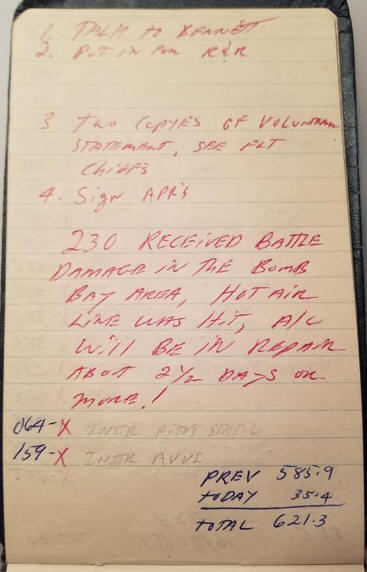 1. TALK TO BENNETT
2. PUT IN FOR R&R
3. TWO COPIES OF VOLUNTARY
STATEMENT, SEE FLT
CHIEFS
4. SIGN APR'S
230 RECEIVED BATTLE
DAMAGE IN THE BOMB
BAY AREA, HOT AIR
LINE WAS HIT, A/C
WILL BE IN REPAIR
ABOT 2 1/2 DAYS OR
MORE!
064-X INSTR PITOT STATIC
159-X INSTR AVVI
PREV 585.9
TODAY 35.4
TOTAL 621.3